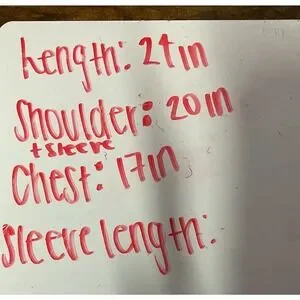 Length: 24in
Shoulder: 20in
+ sleeve
Chest: 17in
Sleeve length: